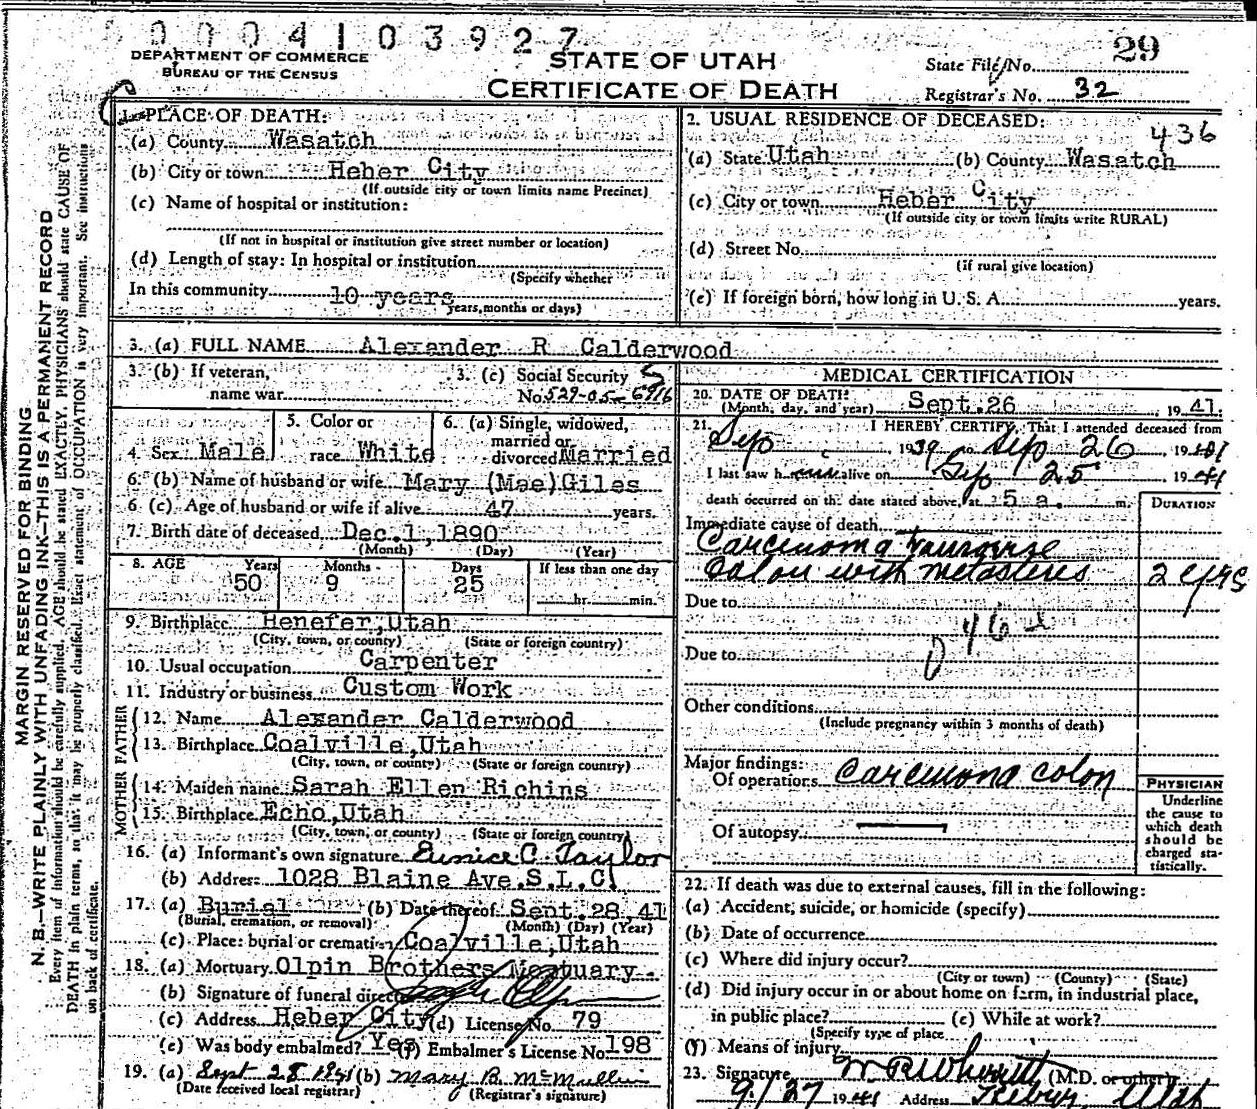 0004103927
DEPARTMENT OF COMMERCE
BUREAU OF THE CENSUS
STATE OF UTAH
CERTIFICATE OF DEATH
State File No. 29
Registrar's No. 32
MARGIN RESERVED FOR BINDING
N. B.—WRITE PLAINLY WITH UNFADING INK—THIS IS A PERMANENT RECORD
Every item of information should be carefully supplied. AGE should be stated EXACTLY. PHYSICIANS should state CAUSE OF
DEATH in plain terms, so that it may be properly classified. Exact statement of OCCUPATION is very important. See instructions
on back of certificate.
1. PLACE OF DEATH:
(a) County Wasatch
(b) City or town Heber City
(If outside city or town limits name Precinct)
(c) Name of hospital or institution:
(If not in hospital or institution give street number or location)
(d) Length of stay: In hospital or institution
(Specify whether
In this community 10 years
years, months or days)
2. USUAL RESIDENCE OF DECEASED:
436
(a) State Utah (b) County Wasatch
(c) City or town Heber City
(If outside city or town limits write RURAL)
(d) Street No.
(if rural give location)
(e) If foreign born, how long in U. S. A. years.
3. (a) FULL NAME Alexander R Calderwood
3. (b) If veteran,
name war
3. (c) Social Security
No. 529-05-6916
5
4. Sex Male
5. Color or
race White
6. (a) Single, widowed,
married or
divorced Married
6. (b) Name of husband or wife Mary (Mae) Giles
6 (c) Age of husband or wife if alive 47 years.
7. Birth date of deceased Dec. 1, 1890
(Month) (Day) (Year)
8. AGE Years Months Days If less than one day
50 9 25 hr. min.
9. Birthplace Henefer, Utah
(City, town, or county) (State or foreign country)
10. Usual occupation Carpenter
11. Industry or business Custom Work
FATHER
12. Name Alexander Calderwood
13. Birthplace Coalville, Utah
(City, town, or county) (State or foreign country)
MOTHER
14. Maiden name Sarah Ellen Richins
15. Birthplace Echo, Utah
(City, town, or county) (State or foreign country)
16. (a) Informant's own signature Eunice C. Taylor
(b) Address 1028 Blaine Ave. S.L.C.
17. (a) Burial (b) Date thereof Sept. 28, 41
(Burial, cremation, or removal) (Month) (Day) (Year)
(c) Place: burial or cremation Coalville, Utah
18. (a) Mortuary Olpin Brothers Mortuary
(b) Signature of funeral director
(c) Address Heber City (d) License No. 79
(e) Was body embalmed? Yes (f) Embalmer's License No. 198
19. (a) Sept 28 1941 (b) Mary B. McMullin
(Date received local registrar) (Registrar's signature)
MEDICAL CERTIFICATION
20. DATE OF DEATH:
(Month, day, and year) Sept. 26, 1941.
21. I HEREBY CERTIFY, That I attended deceased from
Sep, 1939 to Sep 26, 1941
I last saw him alive on Sep 25 1941
death occurred on the date stated above, at 5 a. m.
DURATION
Immediate cause of death
Carcinoma Transverse
Colon with metastases 2 yrs
Due to
46
Due to
Other conditions
(Include pregnancy within 3 months of death)
Major findings:
Of operations Carcinoma Colon
Of autopsy
PHYSICIAN
Underline
the cause to
which death
should be
charged sta-
tistically.
22. If death was due to external causes, fill in the following:
(a) Accident, suicide, or homicide (specify)
(b) Date of occurrence
(c) Where did injury occur?
(City or town) (County) (State)
(d) Did injury occur in or about home on farm, in industrial place,
in public place? (e) While at work?
(Specify type of place
(f) Means of injury
23. Signature W R Wherritt (M.D. or other)
9/27 1941 Address Heber, Utah